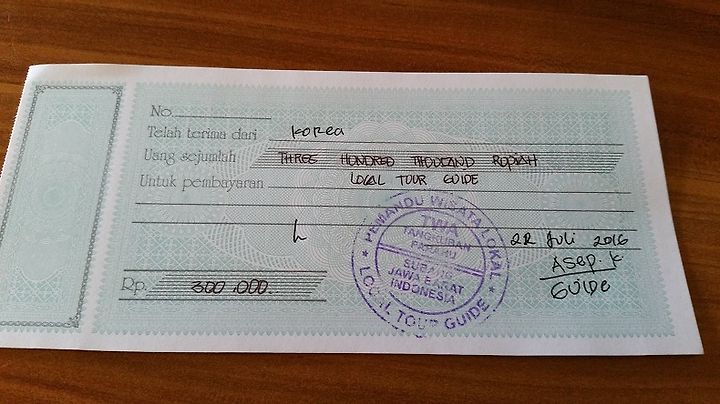 No.
Telah terima dari Korea
Uang sejumlah THREE HUNDRED THOUSAND RUPIAH
Untuk pembayaran LOCAL TOUR GUIDE
22 Juli 2016
Rp. 300.000
ASEP.K
GUIDE
PEMANDU WISATA LOKAL
TWA
TANGKUBAN
PARAHU
SUBANG
JAWA BARAT
INDONESIA
LOCAL TOUR GUIDE